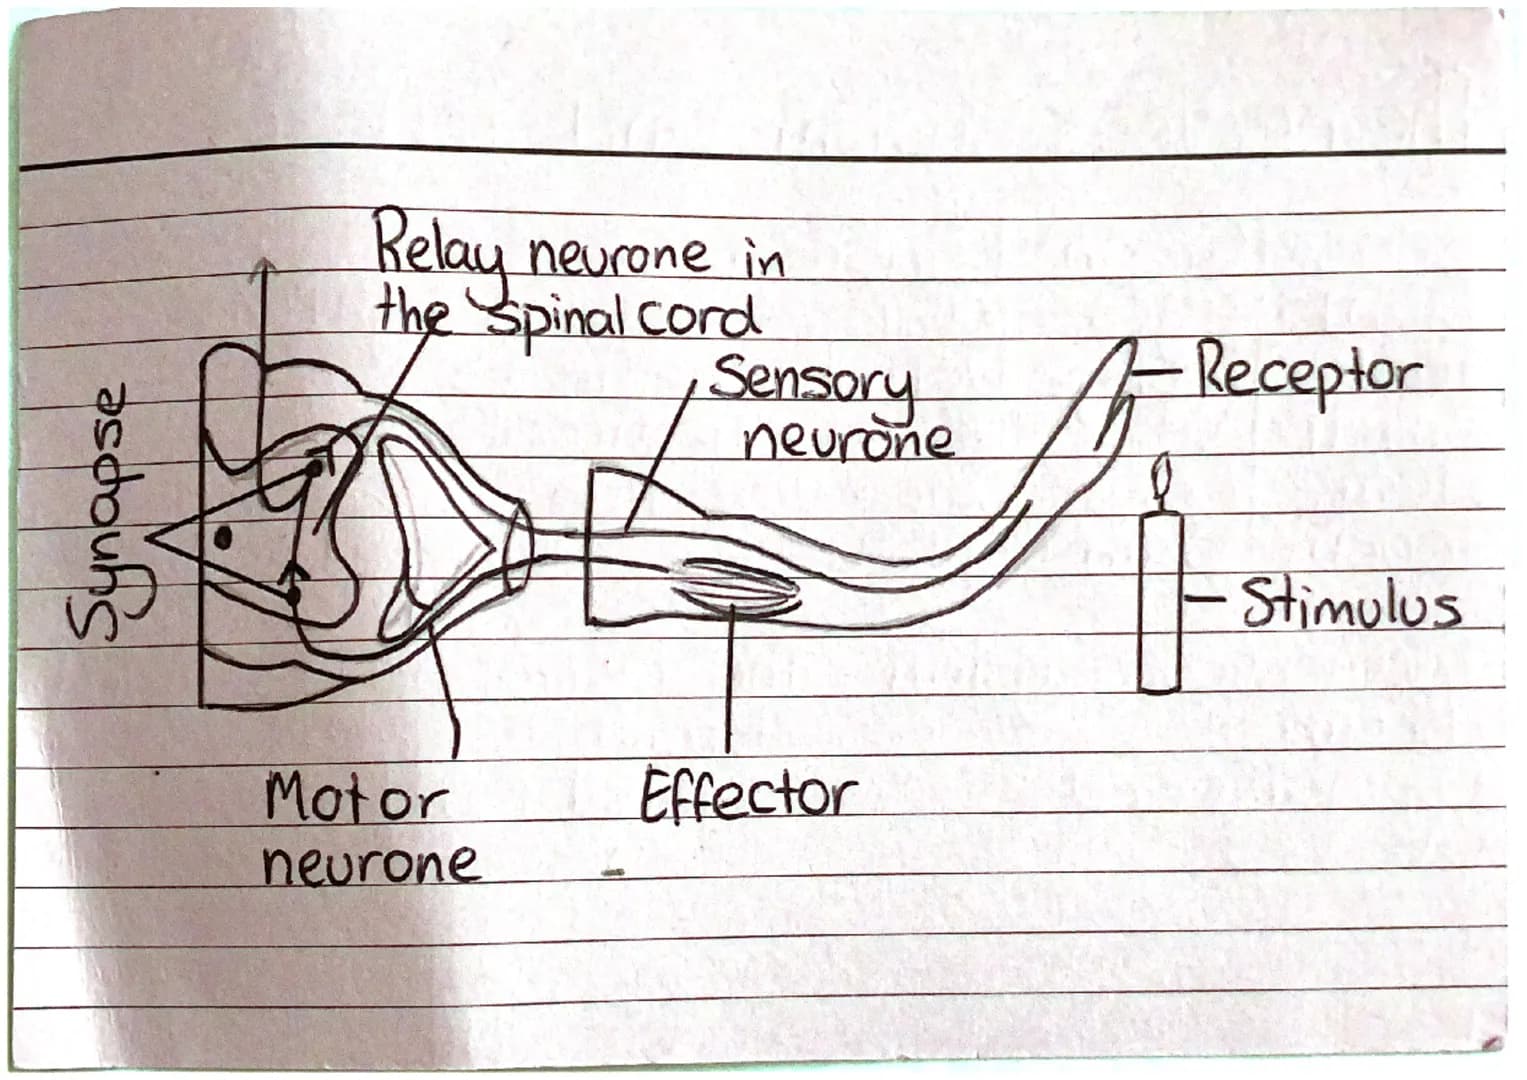 Relay neurone in
the spinal cord
Sensory
neurone
Receptor
Synapse
Stimulus
Motor
neurone
Effector